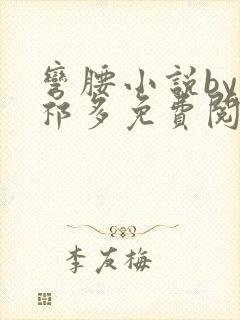 彎腰小說by
祁多免費閱
李友梅